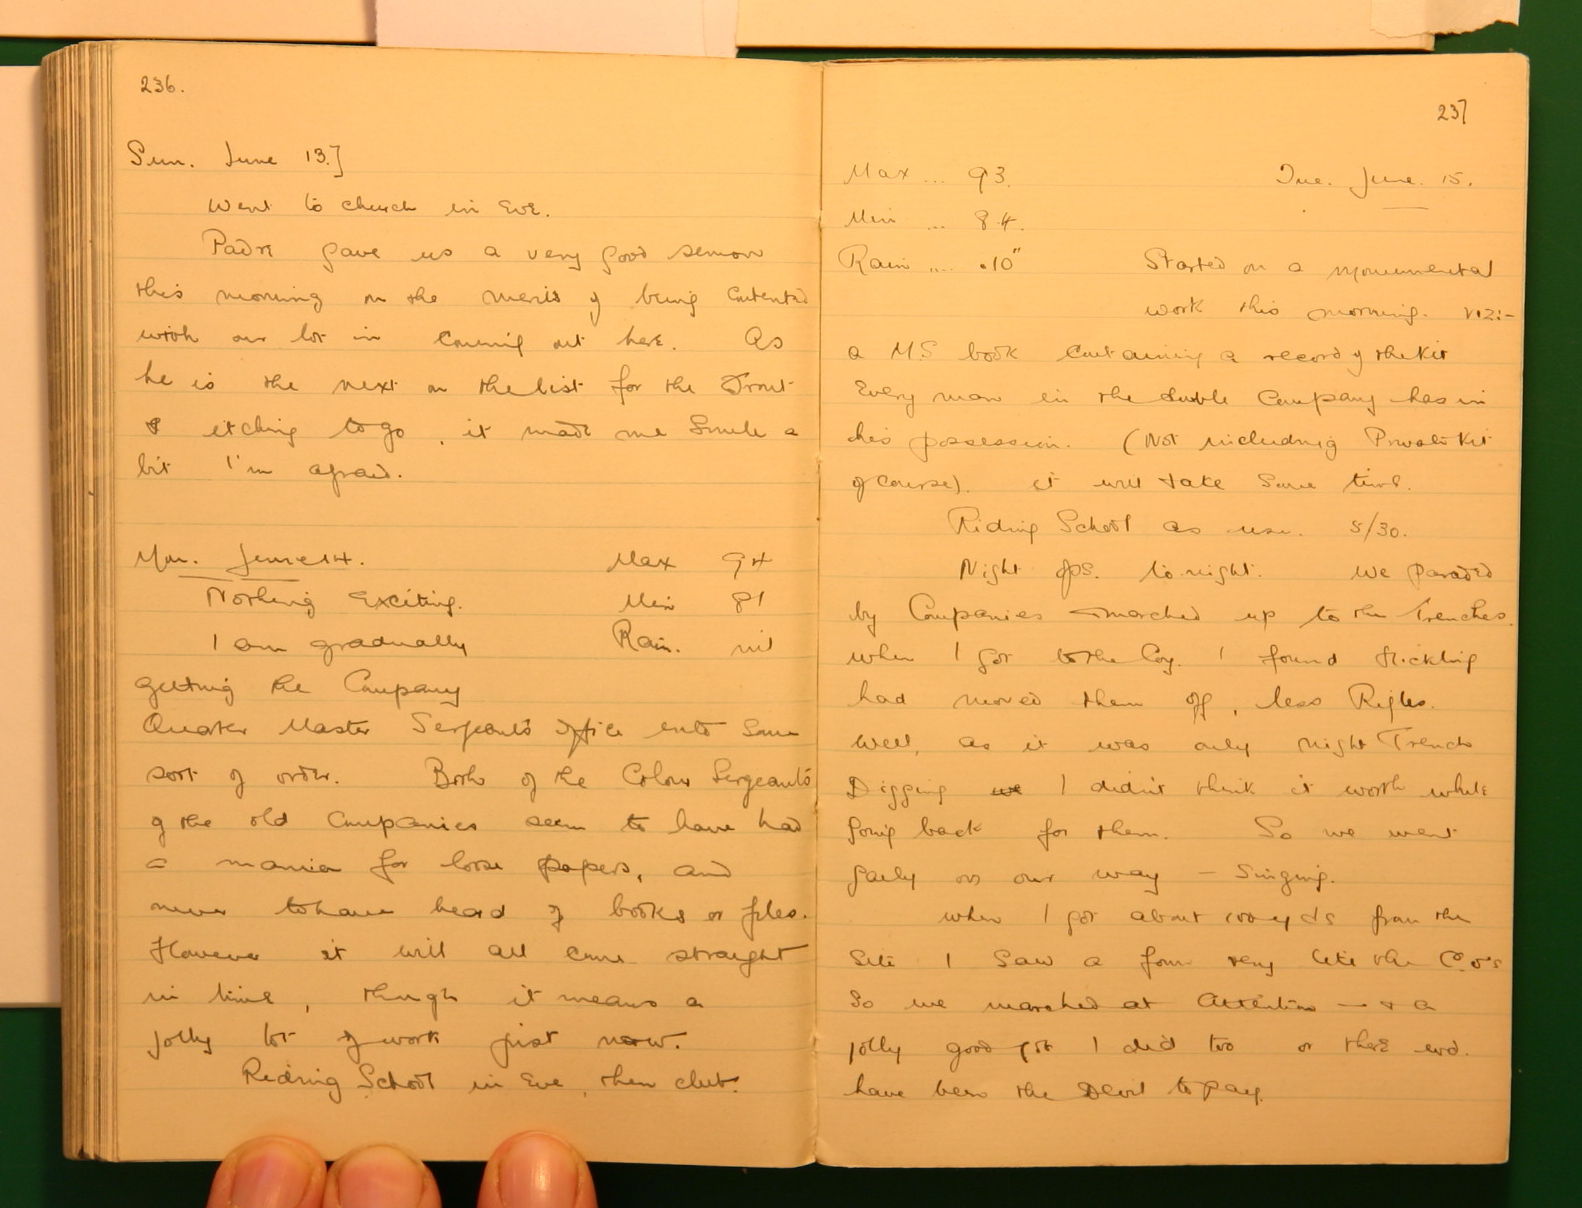 236.
Sun. June 13.]
Went to church in Eve.
Padre gave us a very good sermon
this morning on the merits of being contented
with our lot in coming out here. As
he is the next on the list for the Front
& itching to go, it made me smile a
bit I'm afraid.
Mon. June 14. Max 94
Nothing Exciting. Min 81
I am gradually Rain. nil
getting the Company
Quarter Master Serjeant's Office into some
sort of order. Both of the Colour Sergeants
of the old Companies seem to have had
a mania for loose papers, and
never to have heard of books or files.
However it will all come straight
in time, though it means a
jolly lot of work just now.
Riding School in Eve, then club.
237
Max ... 93. Tue. June. 15.
Min ... 84.
Rain .... .10" Started on a monumental
work this morning. viz:-
a M.S book containing a record of the Kit
Every man in the double Company has in
his possession. (Not including Private Kit
of course). it will take some time.
Riding School as usu. 5/30.
Night Ops. to-night. We paraded
by Companies & marched up to the Trenches.
when I got to the Coy. I found
had moved them off, less Rifles.
Well, as it was only night Trench
Digging we I didn't think it worth while
going back for them. So we went
gaily on our way - Singing.
when I got about 100 yds from the
Site I saw a form very like the C.O's
So we marched at Attention - & a
jolly good job I did too or there wd.
have been the Devil to pay.